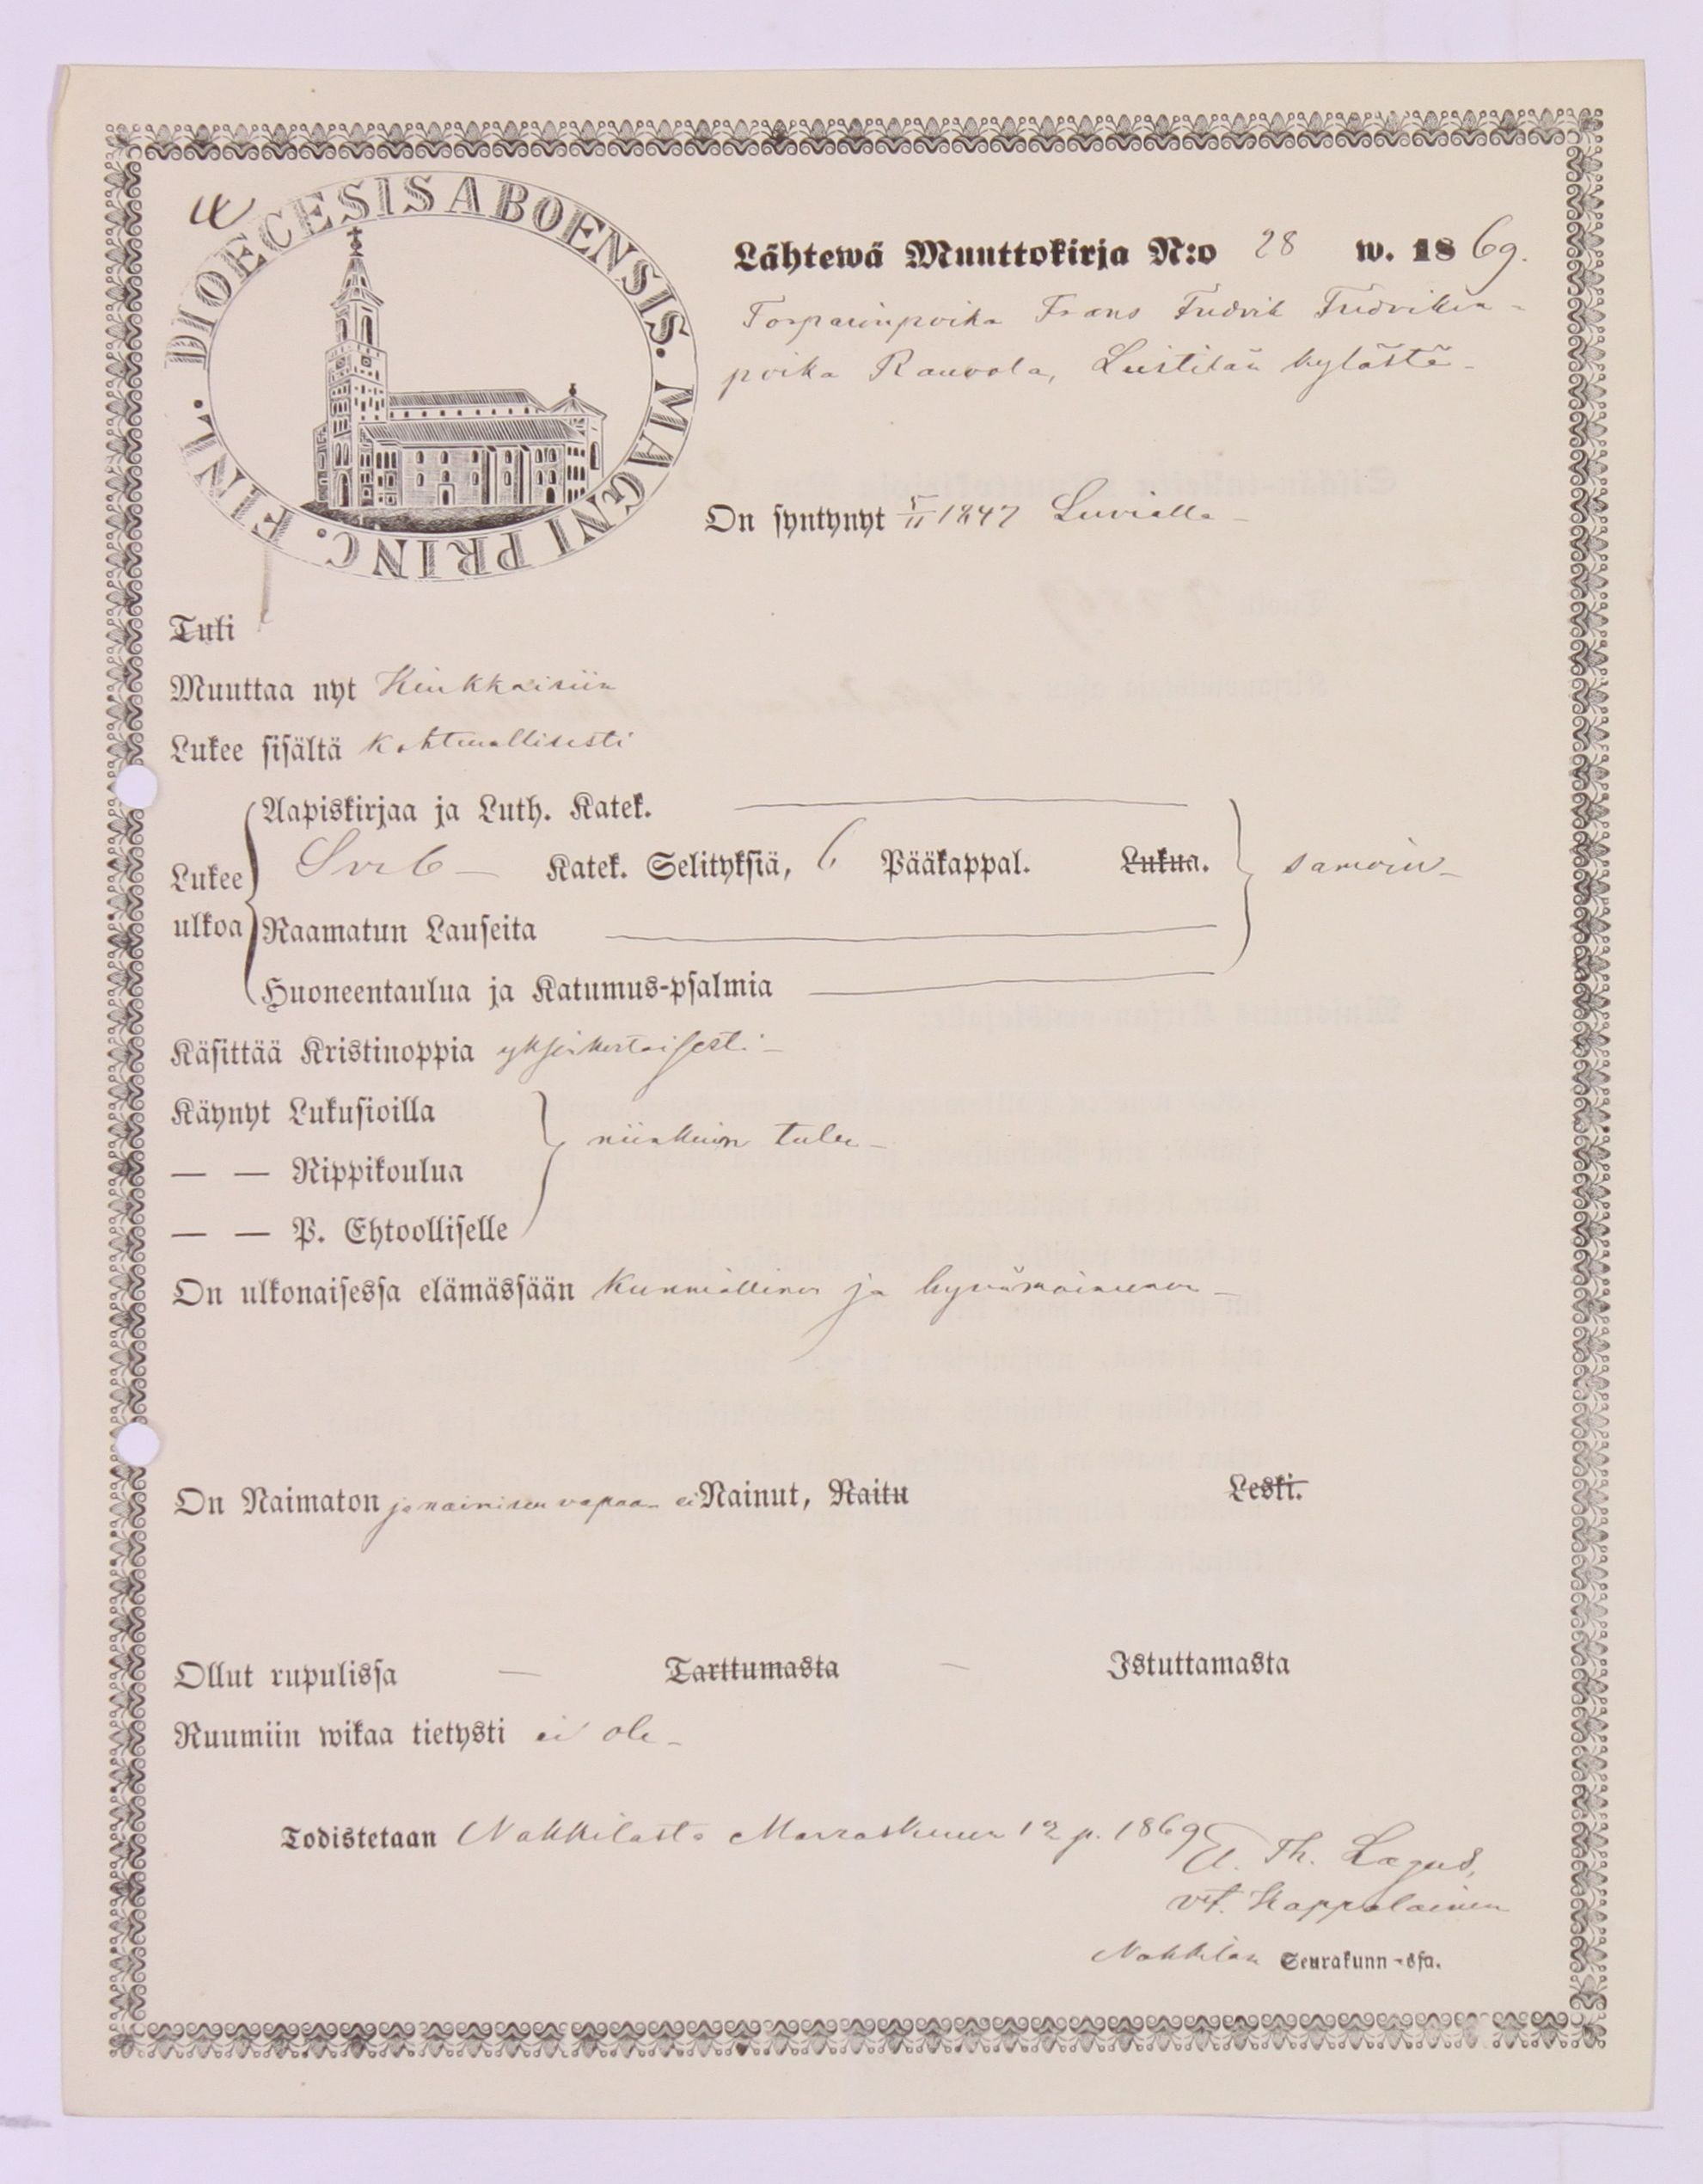 DIOECESIS ABOENSIS. MAGNI PRINC. FINL.
Lähtewä Muuttokirja N:o 28 w. 1869.
Torparinpoika Frans Fredrik Fredrikin-
poika Rauvola, Leistilän kylästä-
On syntynyt 5/11 1847 Luvialla-
Tuli
Muuttaa nyt Kiukkaisiin
Lukee sisältä kohtuullisesti
Aapiskirjaa ja Luth. Katek.
Lukee Katek. Selityksiä, 6 Pääkappal. Lukua. samoin-
ulkoa Raamatun Lauseita
Huoneentaulua ja Katumus-psalmia
Käsittää Kristinoppia yksinkertaisesti-
Käynyt Lukusioilla
niinkuin tulee-
— — Rippikoulua
— — P. Ehtoolliselle
On ulkonaisessa elämässään kunniallinen ja hyvämaineinen-
On Naimaton ja naimiseen vapaa- ei Nainut, Naitu Leski.
Ollut rupulissa — Tarttumasta — Istuttamasta
Ruumiin wikaa tietysti ei ole-
Todistetaan Nakkilasta Marraskuun 12 p. 1869
Th. Lagus,
vt. Kappalainen
Nakkilan Seurakunn-ssa.